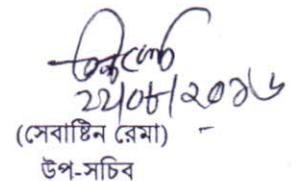 ২২/০৮/২০১৬
(সেবাষ্টিন রেমা)
উপ-সচিব